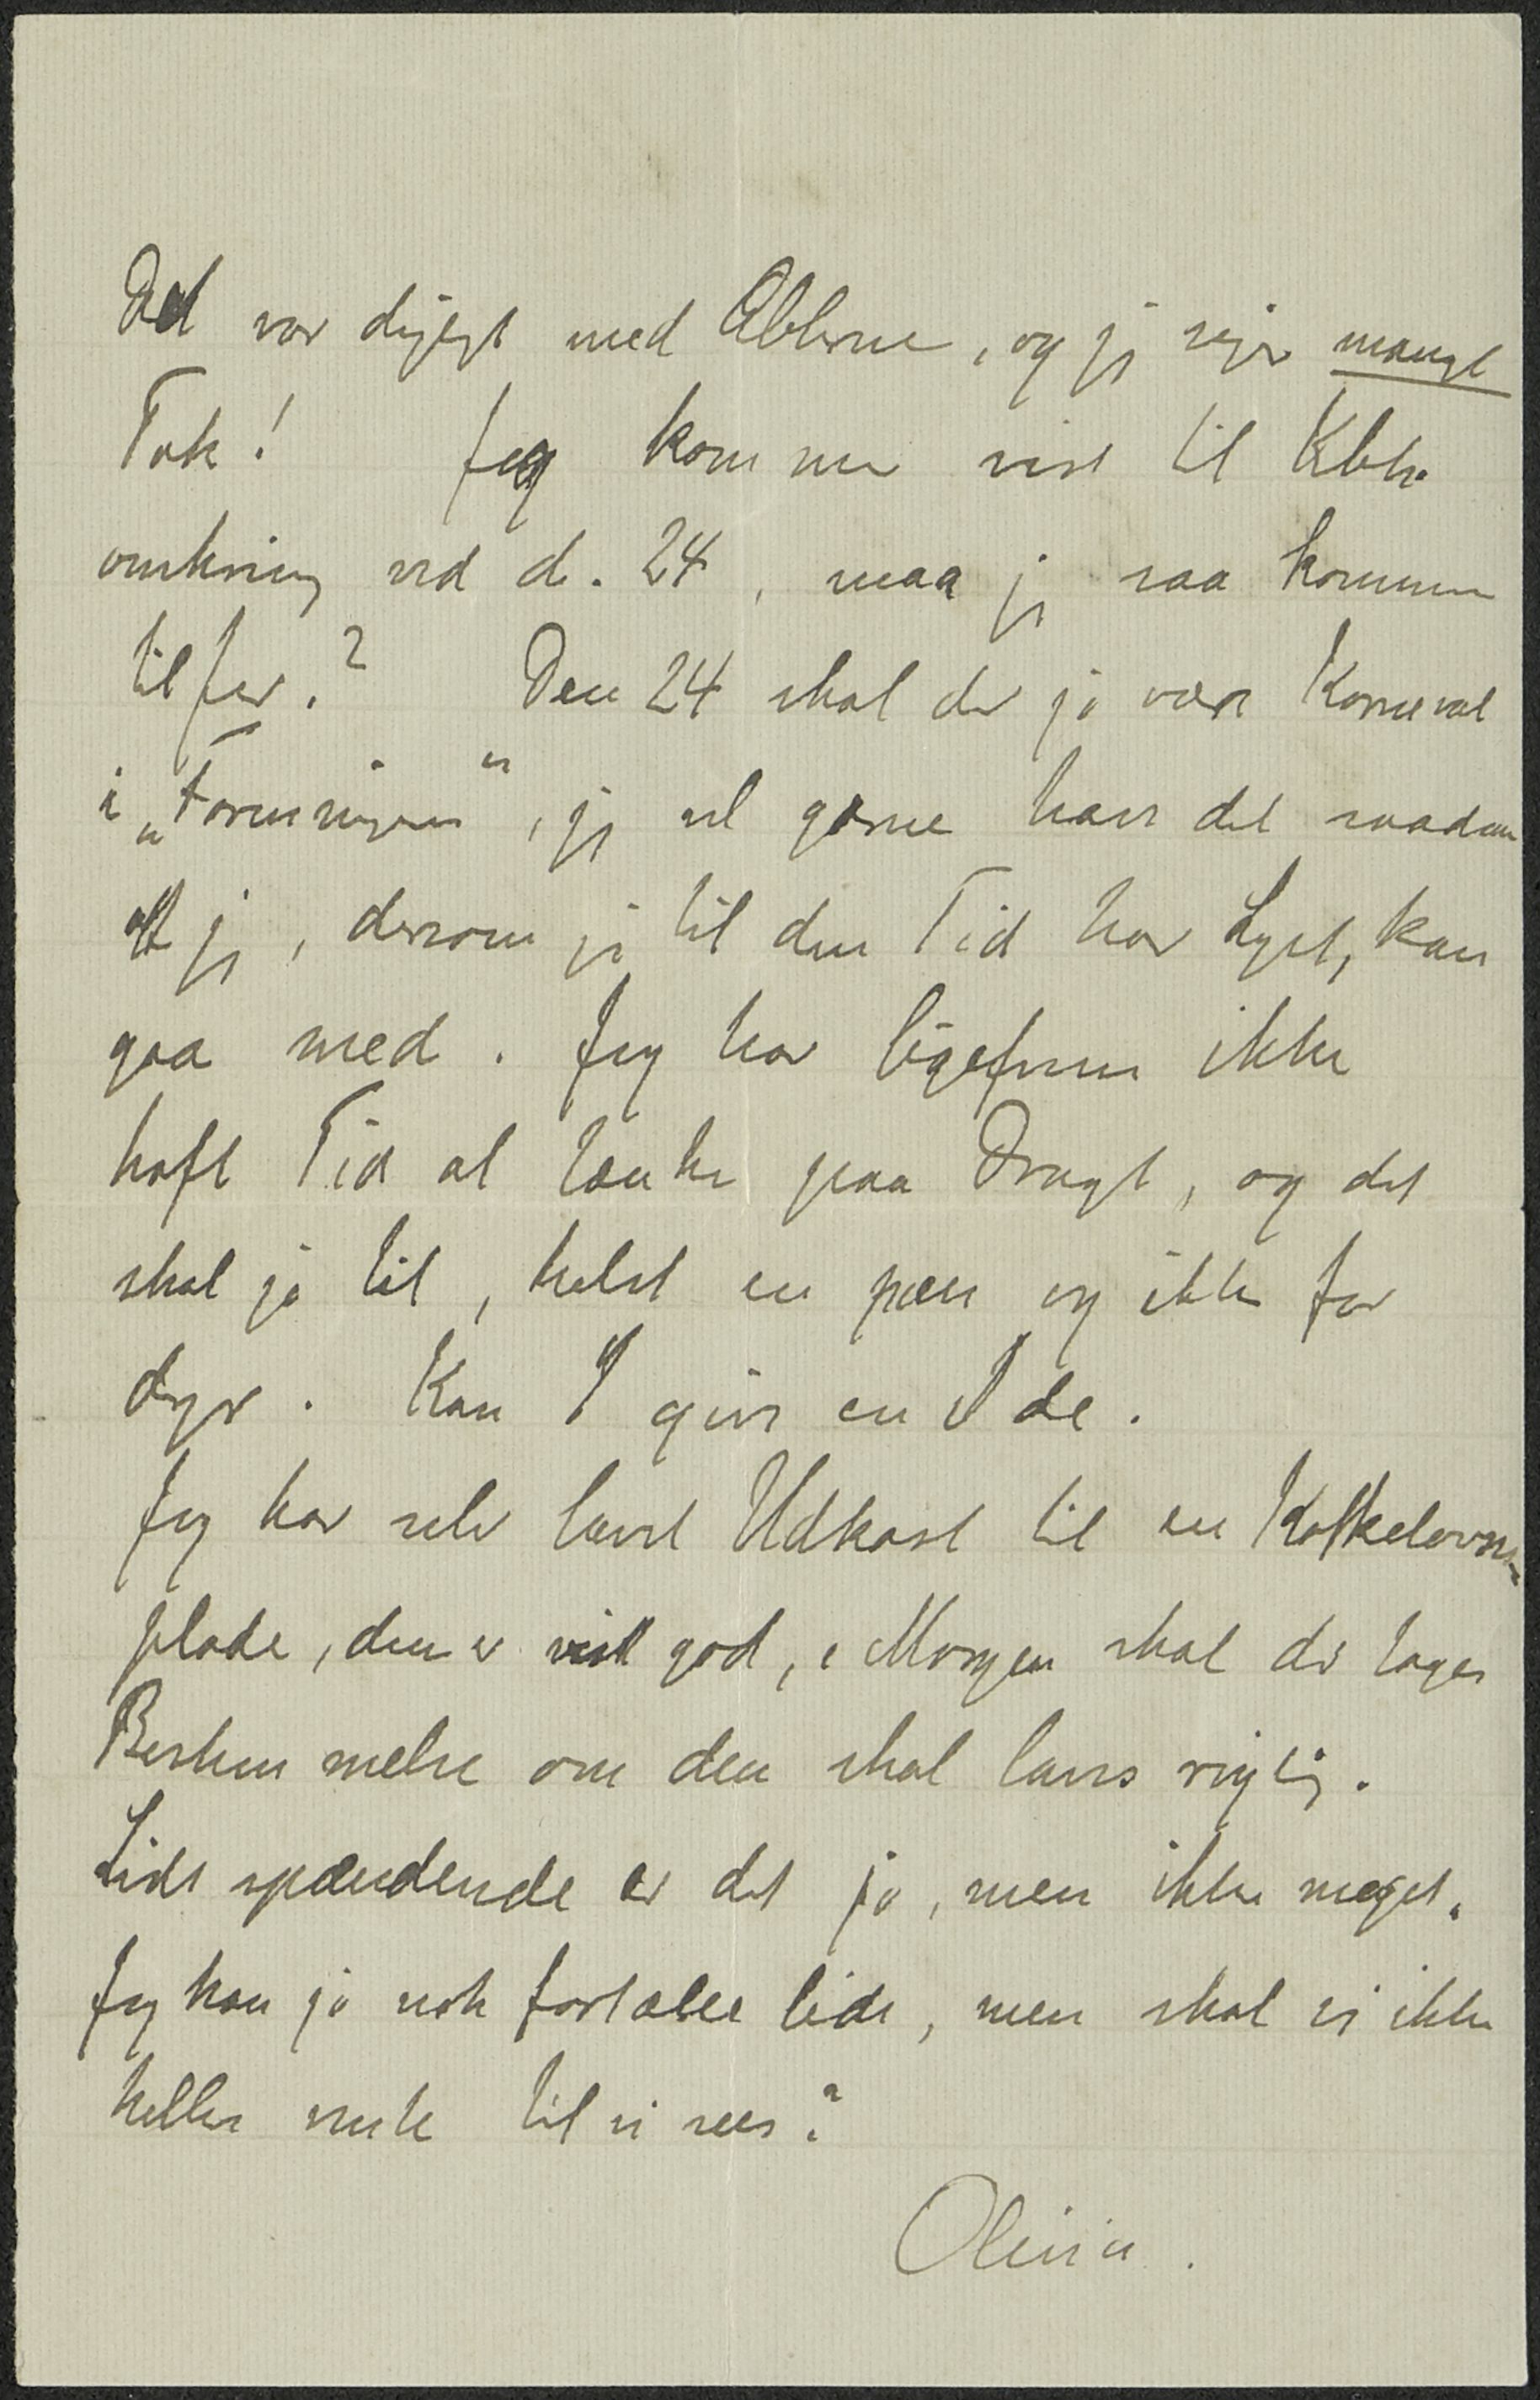 Det var dejligt med Æblerne, og jeg siger mangt
Tak! Jeg kommer vist til Kbh.
omkring ved d. 24, maa jeg saa komme
til Jer.? Den 24 skal der jo være Karneval
i „Foreningen“, jeg vil gærne have det saadan
at jeg, dersom jeg til den Tid har Lyst, kan
gaa med. Jeg har ligefrem ikke
haft Tid at tænke paa Dragt, og det
skal jo til, helst en pæn og ikke for
dyr. Kan I give en Ide.
Jeg har selv lavet Udkast til en Kakkelovns-
plade, den er vist god, i Morgen skal der tages
Bestemmelse om den skal laves rigtig.
Lidt spændende er det jo, men ikke meget.
Jeg kan jo nok fortælle lidt, men skal vi ikke
heller vente til vi sees?
Olivia.